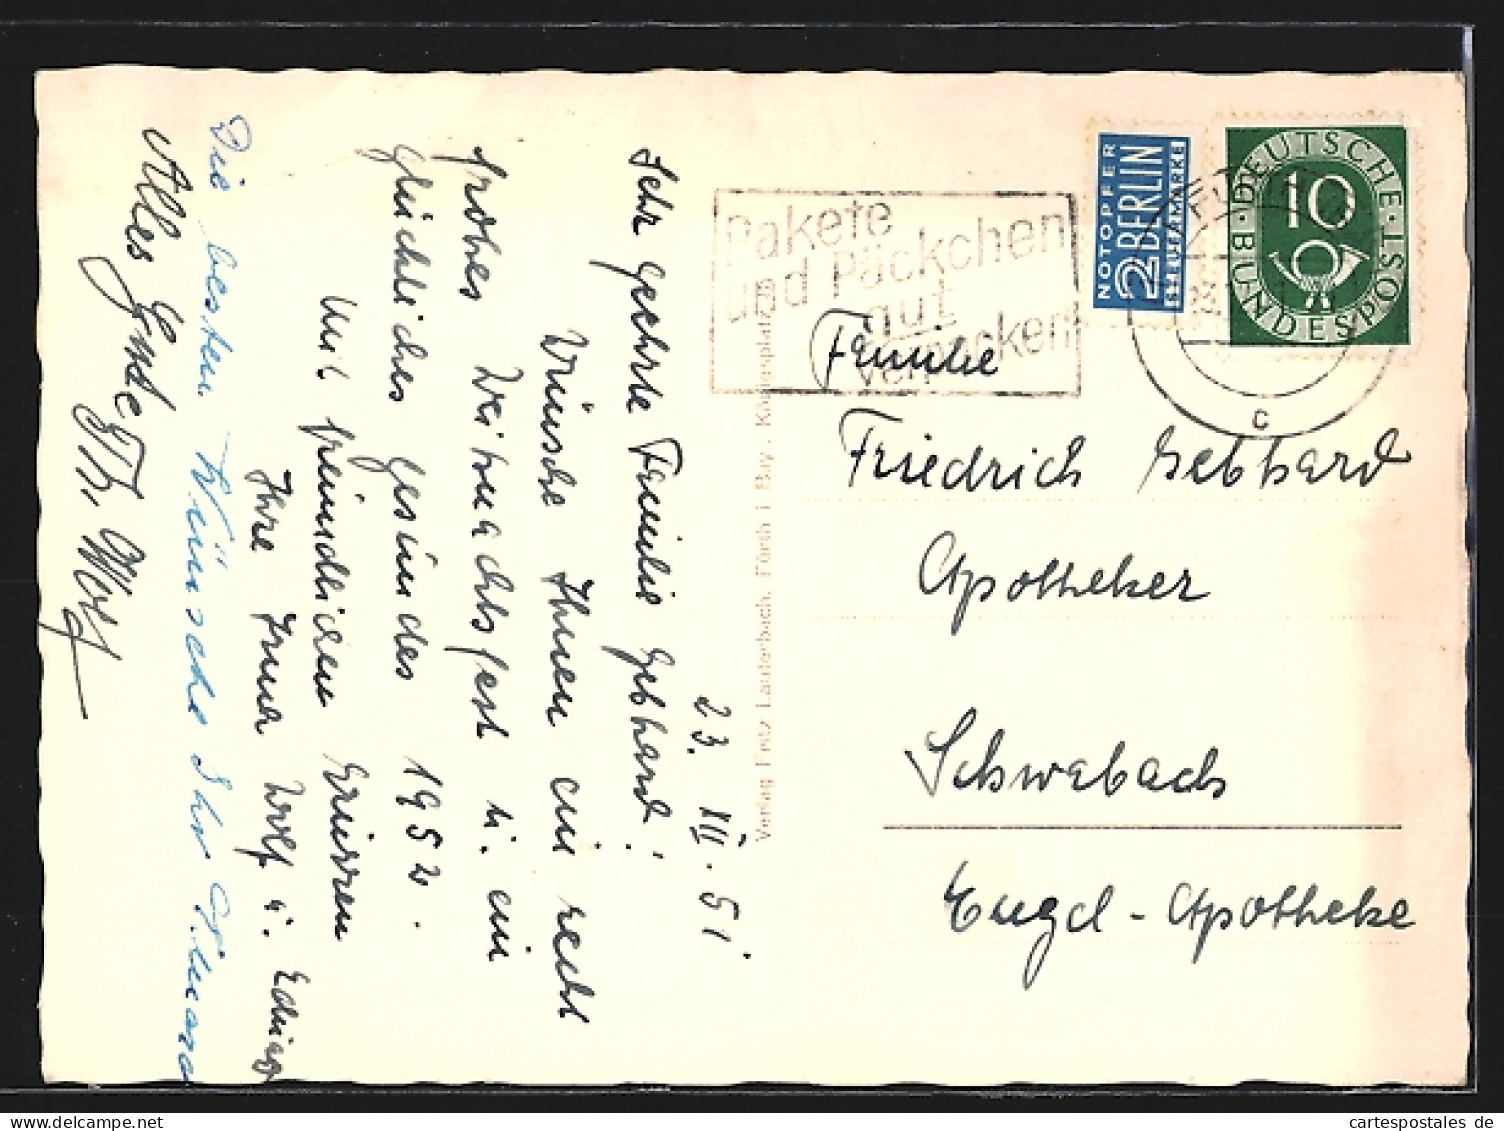 23. XII. 51
Sehr geehrte Familie Gebhard!
Wünsche Ihnen ein recht
frohes Weihnachtsfest u. ein
glückliches gesundes 1952.
Mit freundlichen Grüssen
Ihre Irma Wolf u.
Die besten Wünsche Ihr
Alles Gute Th. Wolf
Verlag Fritz Lauterbach, Fürth i. Bay., Königsplatz
Pakete
und Päckchen
gut
verpacken
NOTOPFER
2 BERLIN
STEUERMARKE
DEUTSCHE
BUNDESPOST
10
c
Familie
Friedrich Gebhard
Apotheker
Schwabach
Engel-Apotheke
cartespostales.de